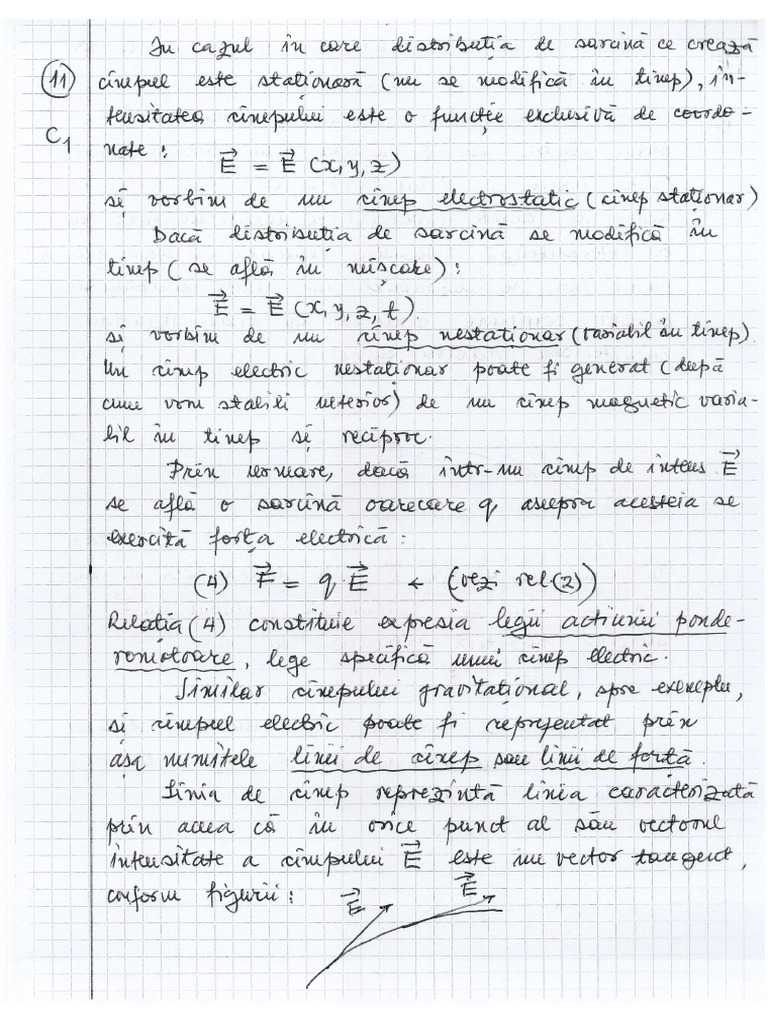 În cazul în care distribuția de sarcină ce crează
(11) cîmpul este staționară (nu se modifică în timp), in-
tensitatea cîmpului este o funcție exclusivă de coordo-
C1 nate:
E⃗ = E⃗ (x, y, z)
și vorbim de un cîmp electrostatic (cîmp staționar)
Dacă distribuția de sarcină se modifică în
timp (se află în mișcare):
E⃗ = E⃗ (x, y, z, t)
și vorbim de un cîmp nestaționar (variabil în timp)
Un cîmp electric nestaționar poate fi generat (după
cum vom stabili ulterior) de un cîmp magnetic varia-
bil în timp și reciproc.
Prin urmare, dacă într-un cîmp de intens E⃗
se află o sarcină oarecare q, asupra acesteia se
exercită forța electrică:
(4) F⃗ = q E⃗ ← (vezi rel(2))
Relația (4) constituie expresia legii acțiunii ponde-
romotoare, lege specifică unui cîmp electric.
Similar cîmpului gravitațional, spre exemplu,
și cîmpul electric poate fi reprezentat prin
așa numitele linii de cîmp sau linii de forță.
Linia de cîmp reprezintă linia caracterizată
prin aceea că în orice punct al său vectorul
intensitate a cîmpului E⃗ este un vector tangent,
conform figurii:
E⃗ E⃗